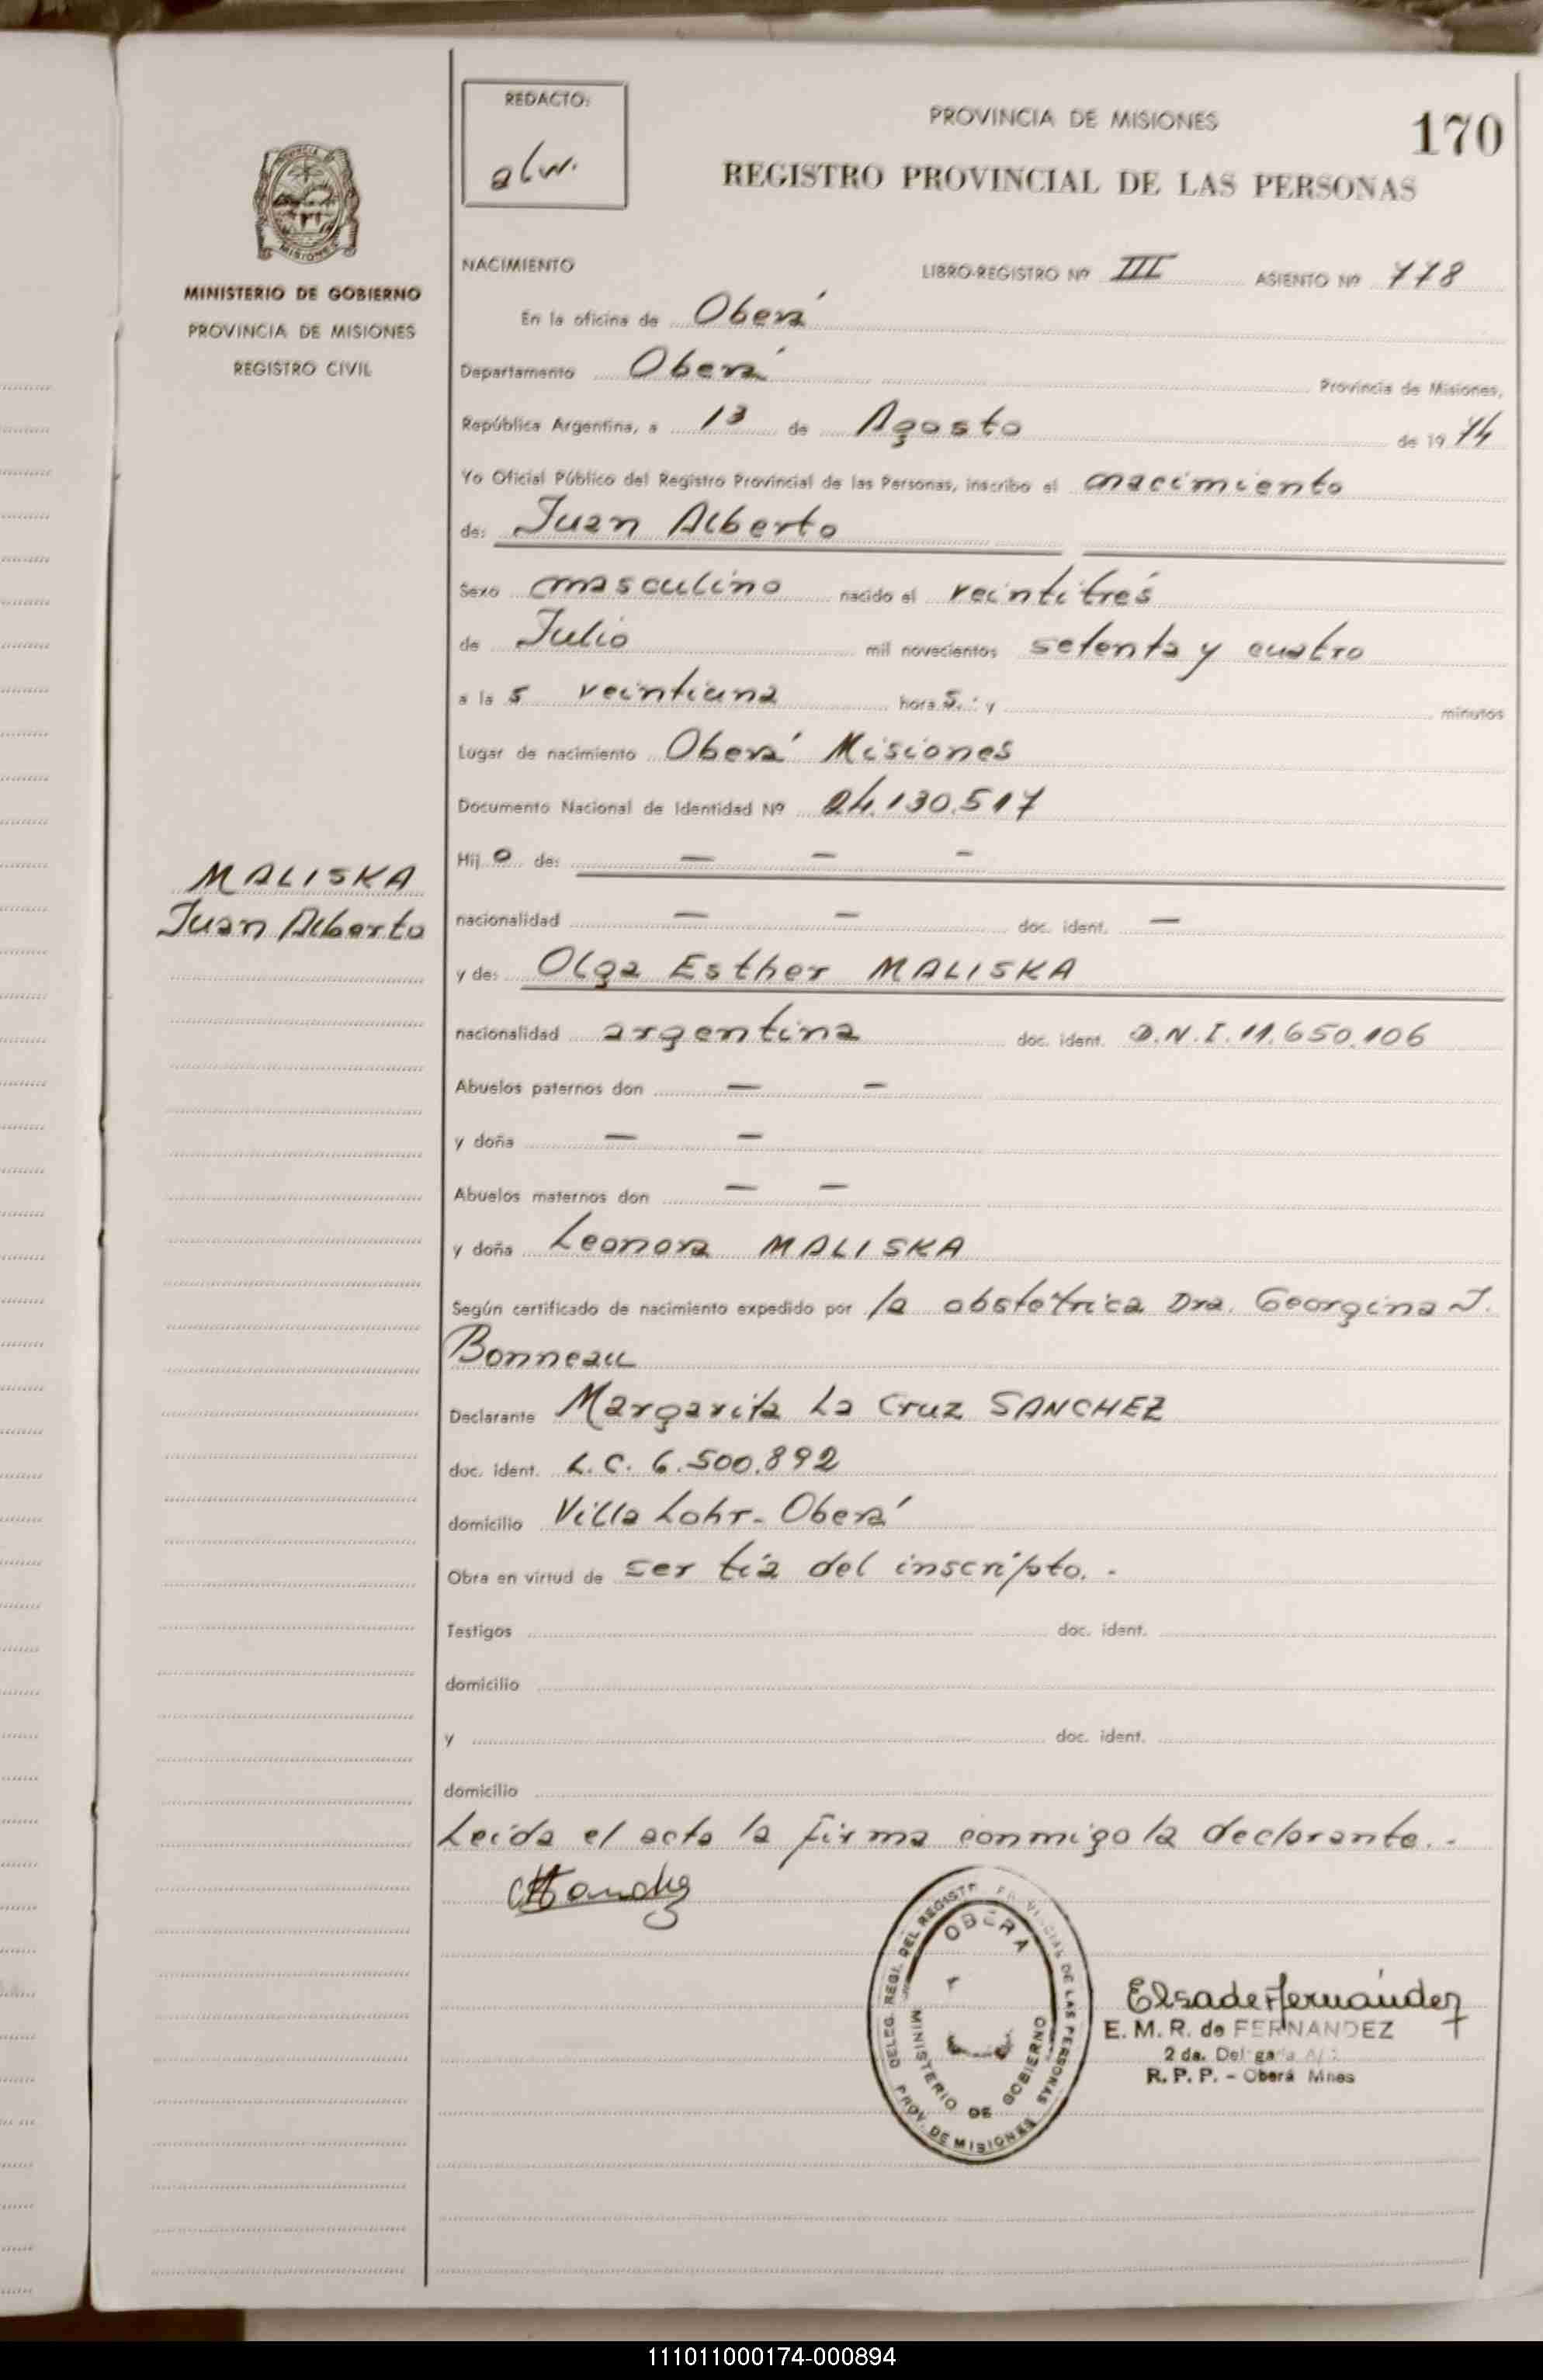 REDACTO:
alw.
PROVINCIA DE MISIONES
170
REGISTRO PROVINCIAL DE LAS PERSONAS
PROVINCIA DE
MISIONES
MINISTERIO DE GOBIERNO
PROVINCIA DE MISIONES
REGISTRO CIVIL
NACIMIENTO LIBRO-REGISTRO Nº III ASIENTO Nº 778
En la oficina de Oberá
Departamento Oberá Provincia de Misiones,
República Argentina, a 13 de Agosto de 1974
Yo Oficial Público del Registro Provincial de las Personas, inscribo el nacimiento
de: Juan Alberto
Sexo masculino nacido el veintitrés
de Julio mil novecientos setenta y cuatro
a la s veintiuna hora s. y minutos
Lugar de nacimiento Oberá Misiones
Documento Nacional de Identidad Nº 24.130.517
Hij o de: — — —
MALISKA
Juan Alberto
nacionalidad — — doc. ident. —
y de: Olga Esther MALISKA
nacionalidad argentina doc. ident. D.N.I. 11.650.106
Abuelos paternos don — —
y doña — —
Abuelos maternos don — —
y doña Leonora MALISKA
Según certificado de nacimiento expedido por la obstétrica Dra. Georgina J.
Bonneau
Declarante Margarita La Cruz SANCHEZ
doc. ident. L.C. 6.500.892
domicilio Villa Lohr - Oberá
Obra en virtud de ser tía del inscripto. -
Testigos doc. ident.
domicilio
y doc. ident.
domicilio
Leída el acta la firma conmigo la declarante. -
DELEG. REGI. DEL REGISTR PROVINCIAL DE LAS PERSONAS
OBERA
MINISTERIO DE GOBIERNO
PROV. DE MISIONES
Elsa de Fernández
E. M. R. de FERNANDEZ
2 da. Delegada
R. P. P. - Oberá Mnes
111011000174-000894